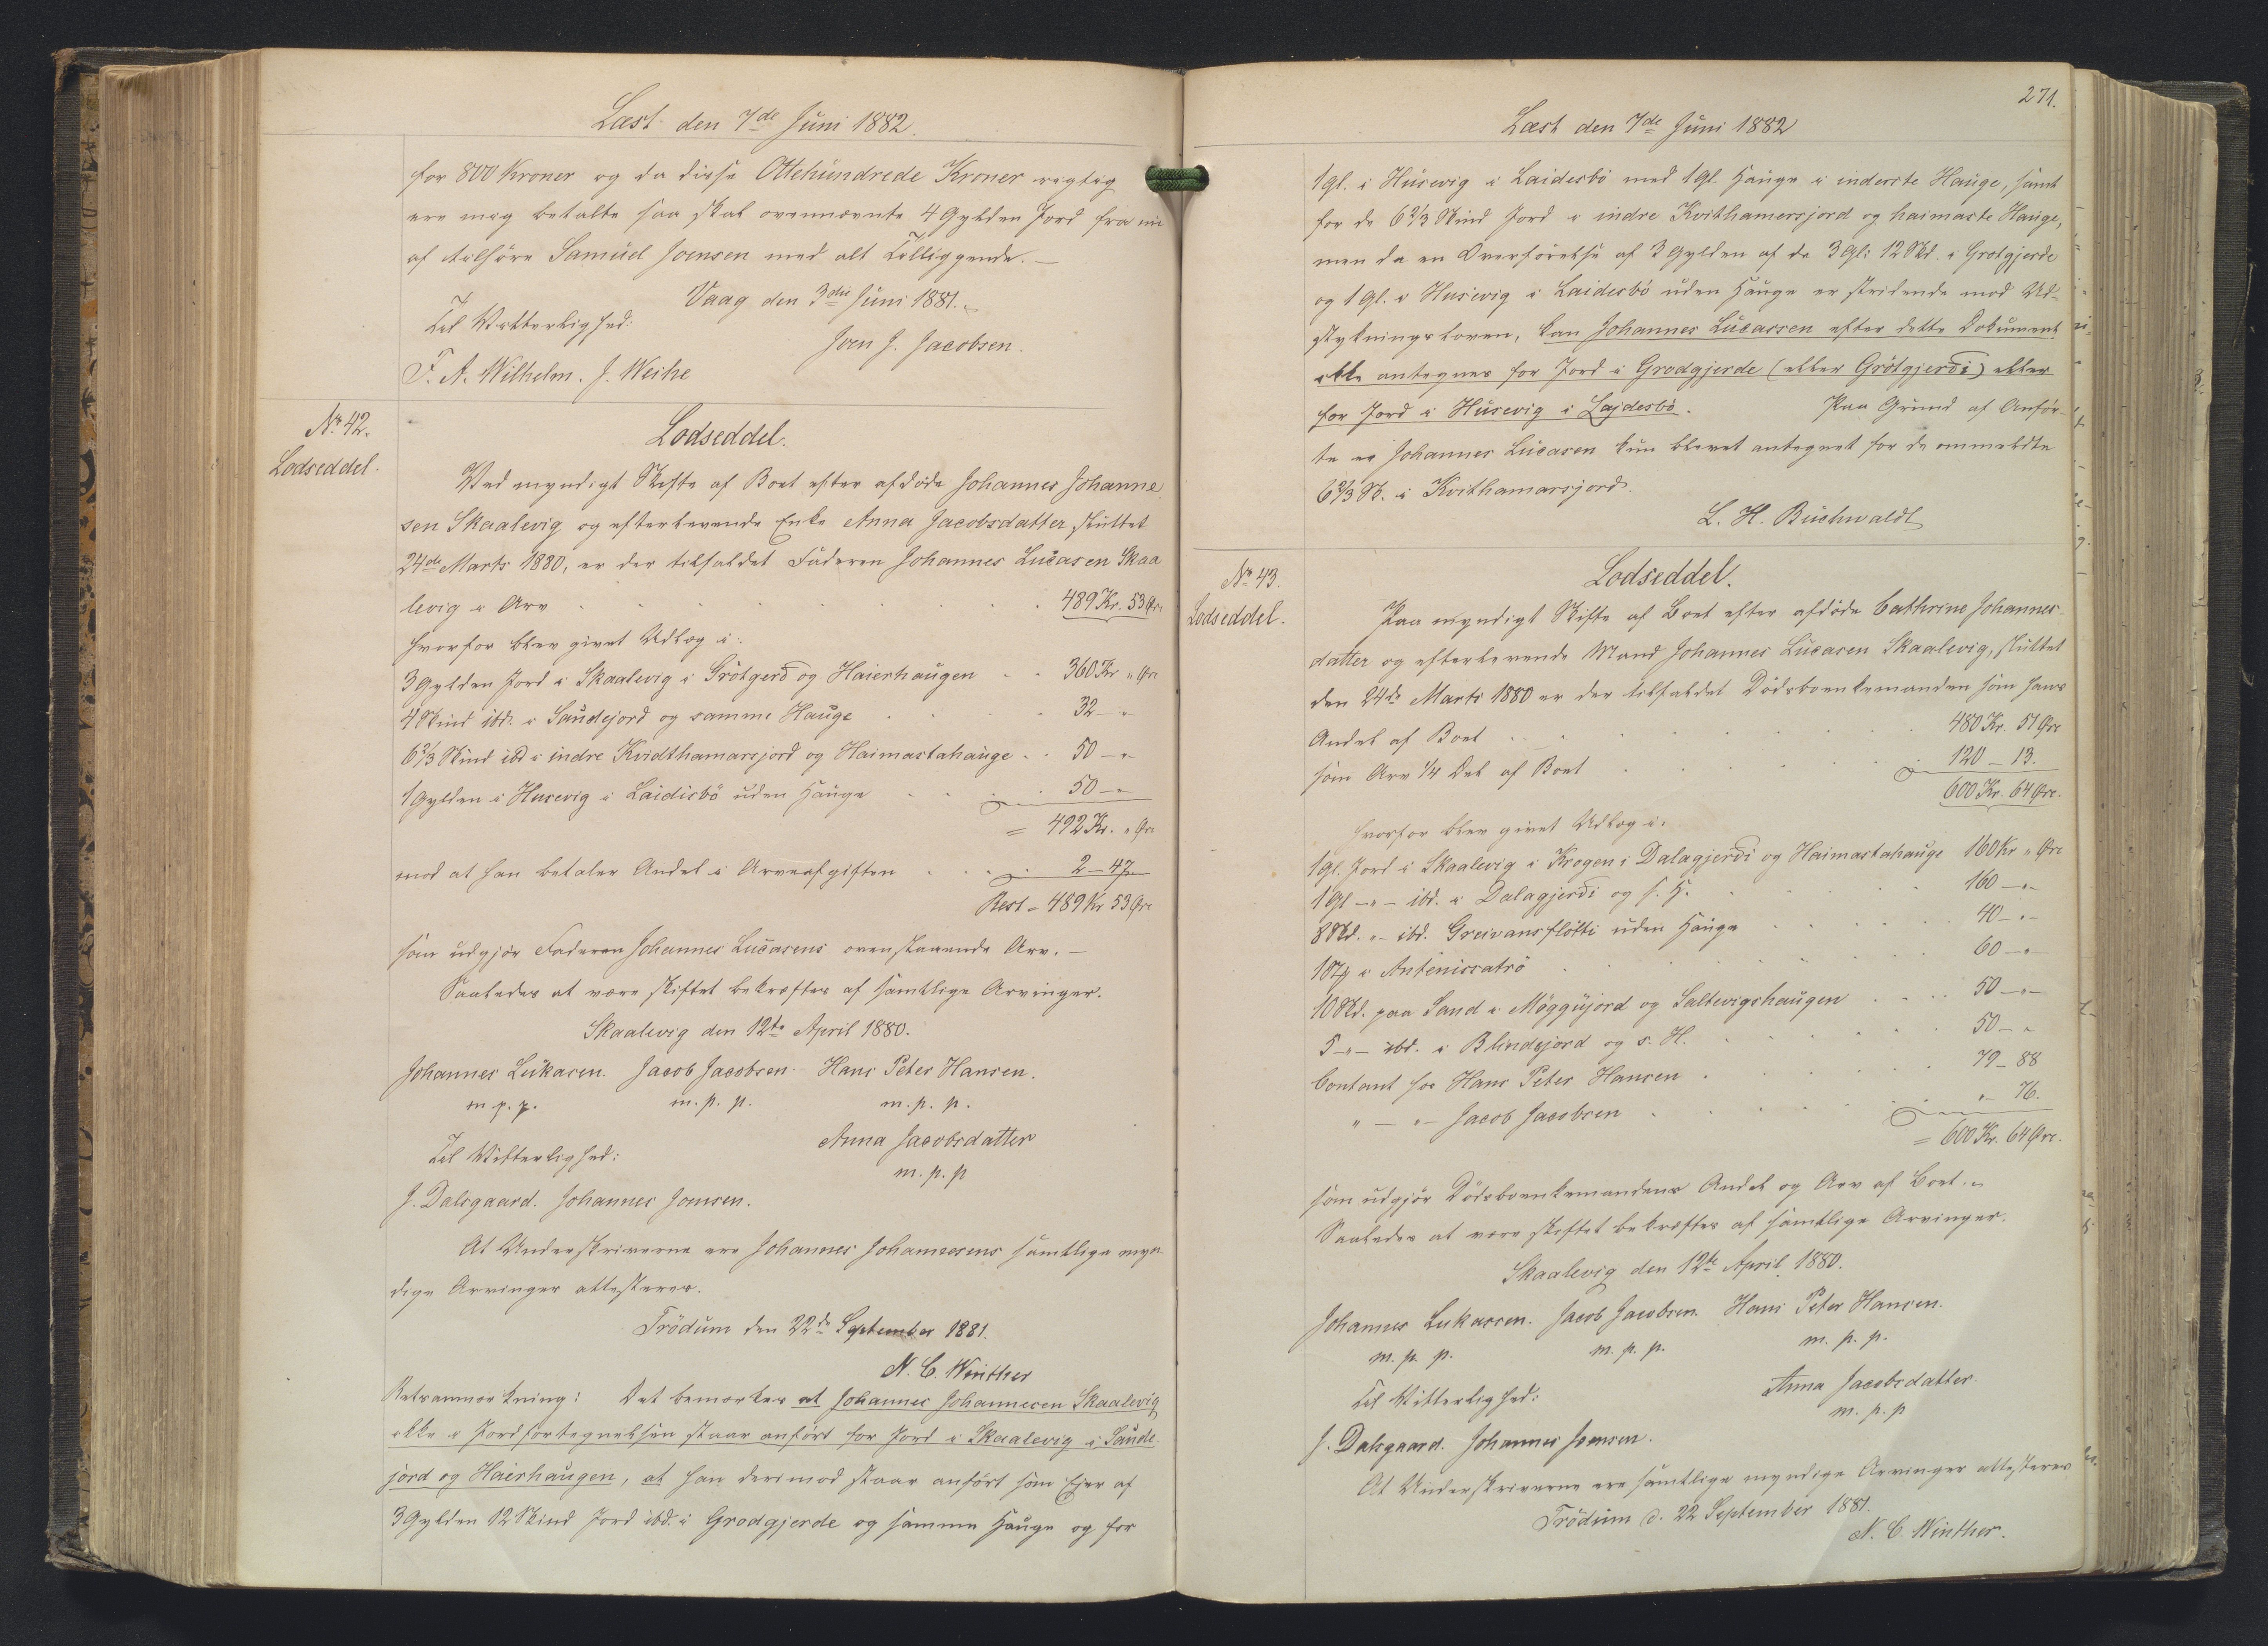 Læst den 7de Juni 1882.
for 800 Kroner og da disse Ottehundrede Kroner rigtig
ere mig betalte saa skal ovennævnte 4 Gylden Jord fra nu
af tilhöre Samuel Joensen med alt Tilliggende. —
Vaag den 3die Juni 1881.
Til Vitterlighed:
Joen J. Jacobsen.
F. A. Wilhelm. J. Weihe
No 42.
Lodseddel.
Lodseddel.
Ved myndigt Skifte af Boet efter afdöde Johannes Johanne
sen Skaalevig og efterlevende Enke Anna Jacobsdatter sluttet
24de Marts 1880, er der tilfaldet Faderen Johannes Lucasen Skaa
levig i Arv 489 Kr. 53 Øre
hvorfor blev givet Udlæg i:
3 Gylden Jord i Skaalevig i Grötgerð og Haierhaugen 360 Kr. " Øre
4 Skind ibd. i Saudejord og samme Hauge 32 — "
6 2/3 Skind ibd i indre Kvidthamarsjord og Haimastahauge 50 — "
1 Gylden i Husevig i Laidisbö uden Hauge 50 — "
= 492 Kr. " Øre
mod at han betaler Andel i Arveafgiften 2 — 47
Rest = 489 Kr 53 Øre
som udgjör Faderen Johannes Lucasens ovenstaaende Arv. —
Saaledes at være skiftet bekræftes af samtlige Arvinger.
Skaalevig den 12te April 1880.
Johannes Lukasen. Jacob Jacobsen. Hans Peter Hansen.
m. p. p. m. p. p. m. p. p.
Anna Jacobsdatter
Til Vitterlighed:
m. p. p
J. Dalsgaard. Johannes Joensen.
At Underskriverne ere Johannes Johannesens samtlige myn-
dige Arvinger attesteres.
Trödum den 22de September 1881.
N. C. Winther
Retsanmærkning: Det bemærkes at Johannes Johannesen Skaalevig
ikke i Jordfortegnelsen staar anfört for Jord i Skaalevig i Saude-
jord og Haierhaugen, at han derimod staar anfört som Ejer af
3 Gylden 12 Skind Jord ibd. i Grodgjerde og samme Hauge og for
271.
Læst den 7de Juni 1882
1 gl. i Husevig i Laidesbö med 1 gl. Hauge i inderste Hauge, samt
for de 6 2/3 Skind Jord i indre Kvithamersjord og haimaste Hauge,
men da en Overförelse af 3 Gylden af de 3 Gl: 12 Skd. i Grotgjerde
og 1 Gl. i Husevig i Laidesbö uden Hauge er stridende mod Ud-
stykningsloven, kan Johannes Lucassen efter dette Dokument
ikke antegnes for Jord i Grodgjerde (eller Grótgjerði) eller
for Jord i Husevig i Lajdesbö. Paa Grund af Anför-
te er Johannes Lucasen kun blevet antegnet for de ommeldte
6 2/3 Sk. i Kvithamarsjord.
L. H. Buchwaldt
No 43.
Lodseddel.
Lodseddel.
Paa myndigt Skifte af Boet efter afdöde Cathrine Johannes-
datter og efterlevende Mand Johannes Lucasen Skaalevig, sluttet
den 24de Marts 1880 er der tilfaldet Dödsboenkemanden som hans
Andel af Boet 480 Kr. 51 Øre
som Arv 1/4 Del af Boet 120 — 13.
600 Kr. 64 Øre.
hvorfor blev givet Udlæg i:
1 gl. Jord i Skaalevig i Krogen i Dalagjerði og Haimastahauge 160 Kr " Øre
1 gl — " — ibd. i Dalagjerði og s. H. 160 — "
8 Skd. " — ibd. Greivansflötti uden Hauge 40 — "
1 i Anteniscatrö 60 — "
10 Skd. paa Sand i Möggujord og Saltevigshaugen 50 — "
5 — " — ibd. i Blindsjord og s. H. 50 — "
Contant hos Hans Peter Hansen 79 — 88
" — " — Jacob Jacobsen " — 76.
= 600 Kr. 64 Øre.
som udgjör Dödsboenkemandens Andel og Arv af Boet.
Saaledes at være skiftet bekræftes af samtlige Arvinger.
Skaalevig den 12te April 1880.
Johannes Lukassen. Jacob Jacobsen. Hans Peter Hansen.
m. p. p. m. p. p. m. p. p.
Anna Jacobsdatter
Til Vitterlighed:
m. p. p
J. Dalsgaard. Johannes Joensen.
At Underskriverne ere samtlige myndige Arvinger attesteres
Trödum d. 22 September 1881.
N. C. Winther.